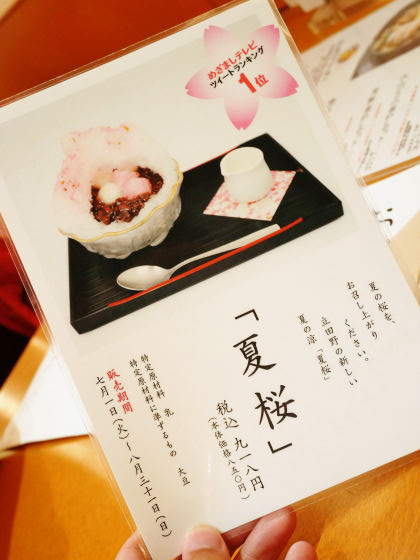 めざましテレビ
ツイートランキング
1位
夏の桜を、
お召し上がり
ください。
立田野の新しい
夏の涼「夏桜」
「夏桜」
税込 九一八円
(本体価格八五〇円)
特定原材料 乳
特定原材料に準ずるもの 大豆
販売期間
七月一日(火)〜八月三十一日(日)